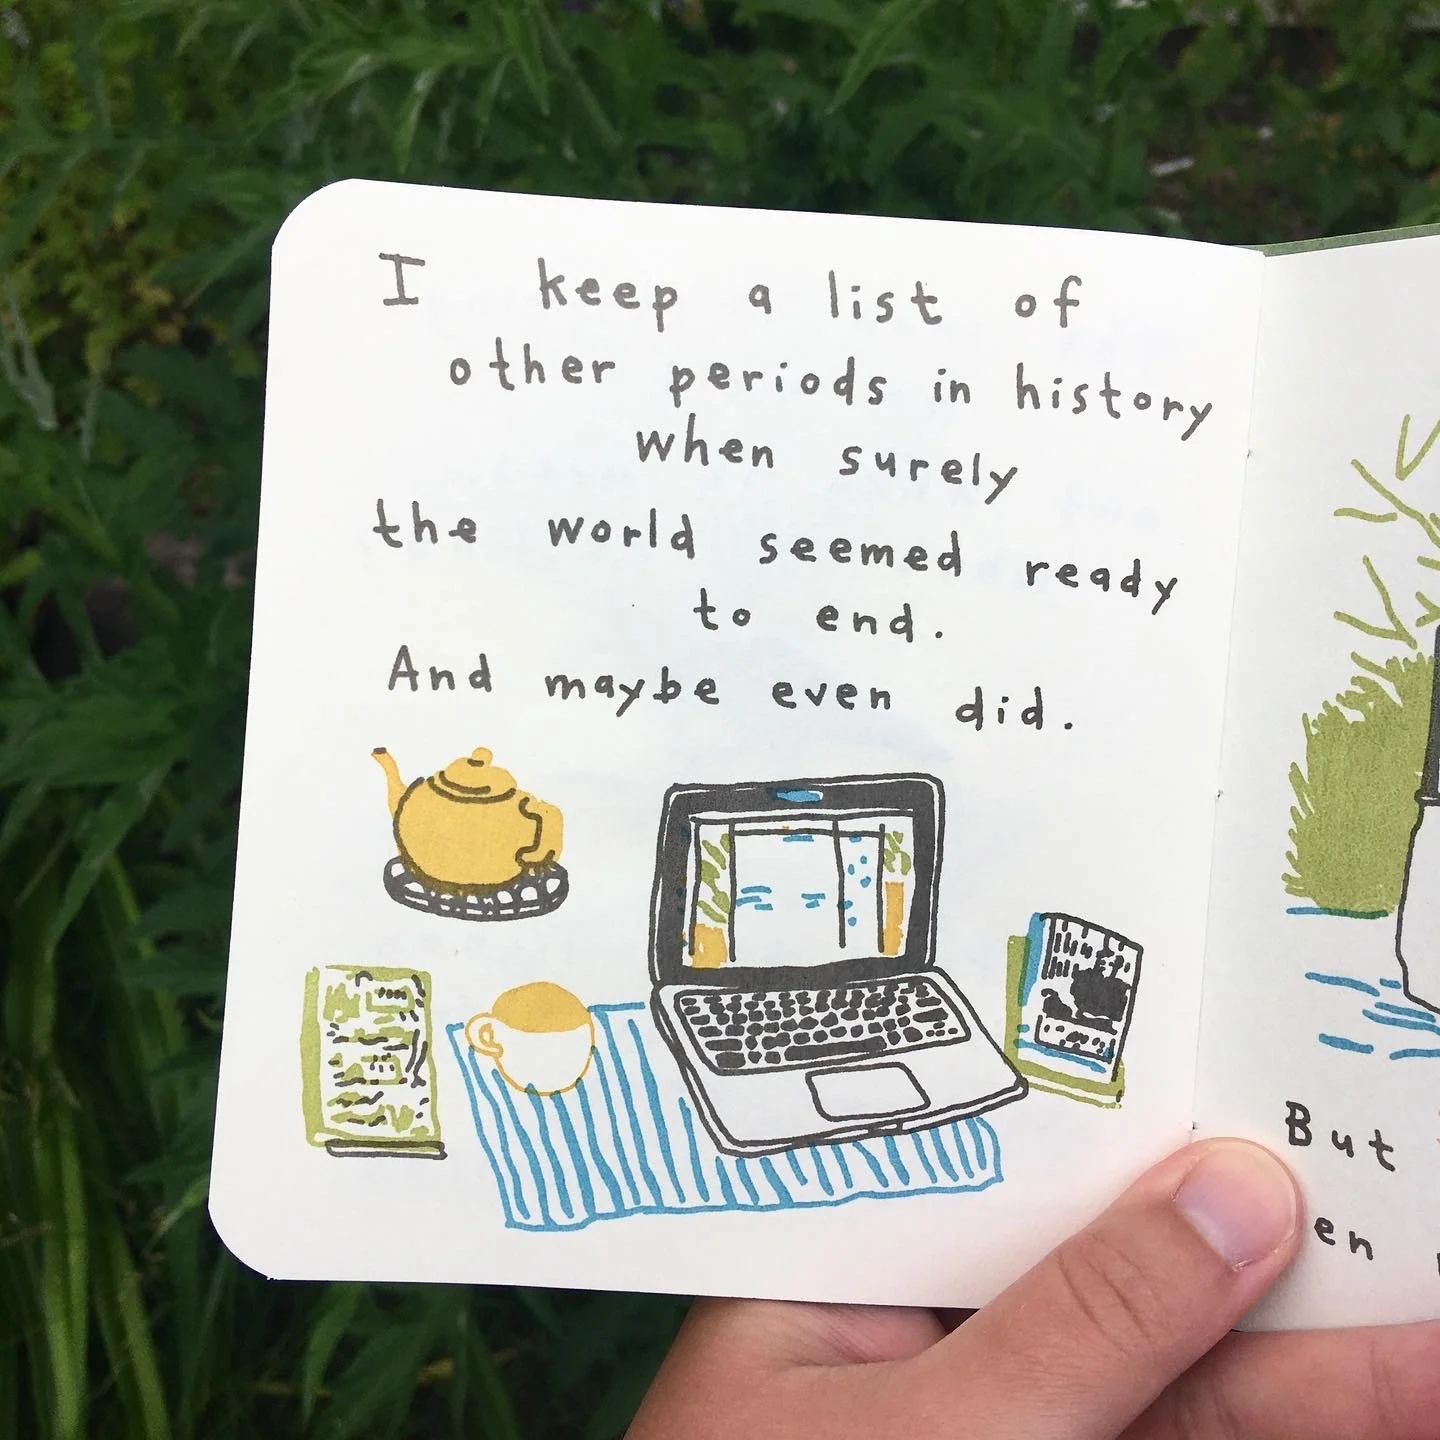 I keep a list of
other periods in history
when surely
the world seemed ready
to end.
And maybe even did.
But
en